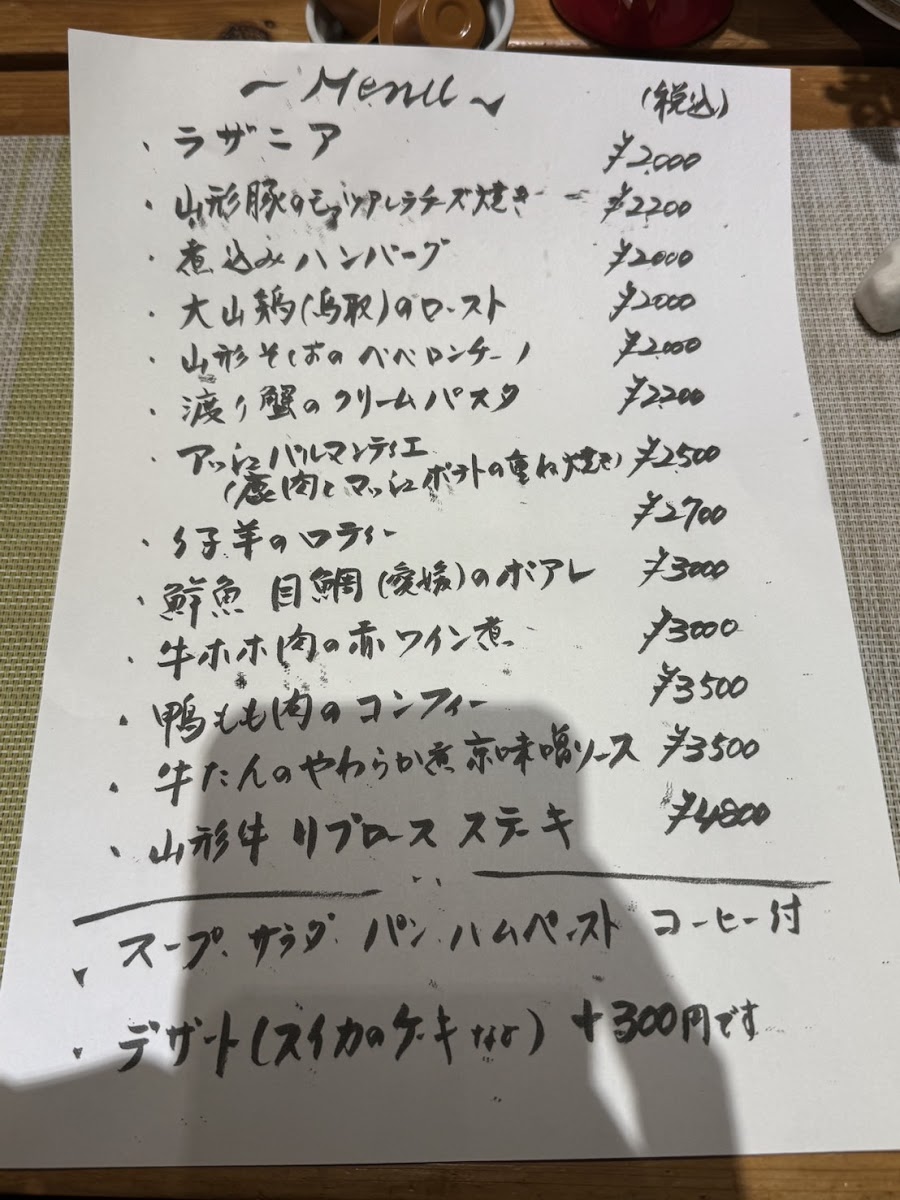 ~ Menu ~ (税込)
・ラザニア ¥2000
・山形豚のモッツアレラチーズ焼き ¥2200
・煮込みハンバーグ ¥2000
・大山鶏(鳥取)のロースト ¥2000
・山形そばのペペロンチーノ ¥2000
・渡り蟹のクリームパスタ ¥2200
・アッシェパルマンティエ ¥2500
(鹿肉とマッシュポテトの重ね焼き)
・子羊のロティー ¥2700
・鮮魚 目鯛(愛媛)のポアレ ¥3000
・牛ホホ肉の赤ワイン煮 ¥3000
・鴨もも肉のコンフィー ¥3500
・牛たんのやわらか煮 京味噌ソース ¥3500
・山形牛 リブロース ステーキ ¥4800
・スープ、サラダ、パン、ハムペースト コーヒー付
・デザート(スイカのケーキなど) +300円です